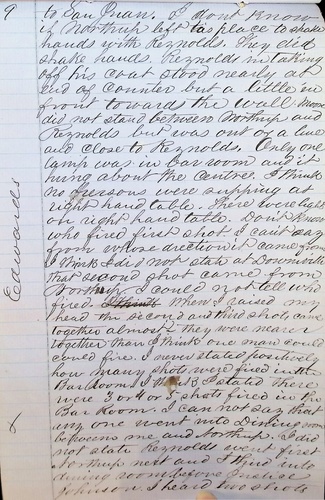 9
to San Juan. I dont know
if Northup left his place to shake
hands with Reynolds. They did
shake hands. Reynolds in taking
off his coat stood nearly at
end of counter but a little in
front towards the wall. Moore
did not stand between Northup and
Reynolds but was out of a line
and close to Reynolds. Only one
lamp was in bar room and it
hung about the centre. I think
no persons were supping at
right hand table. There were
on right hand table. Dont know
who fired first shot. I cant say
from whose direction it came from
I think I did not state at Downieville
that second shot came from
Northup. I could not tell who
fired. I think When I raised my
head the second and third shots came
together almost - they were nearer
together than I think one man could
could fire. I never stated positively
how many shots were fired in the
Bar Room. I think I stated there
were 3 or 4 or 5 shots fired in the
Bar Room. I can not say that
any one went into Dining room
between me and Northup. I did
not state Reynolds went first
Northup next and I third into
dining room before Justice
Johnson. I heard two shots
Edwards
x